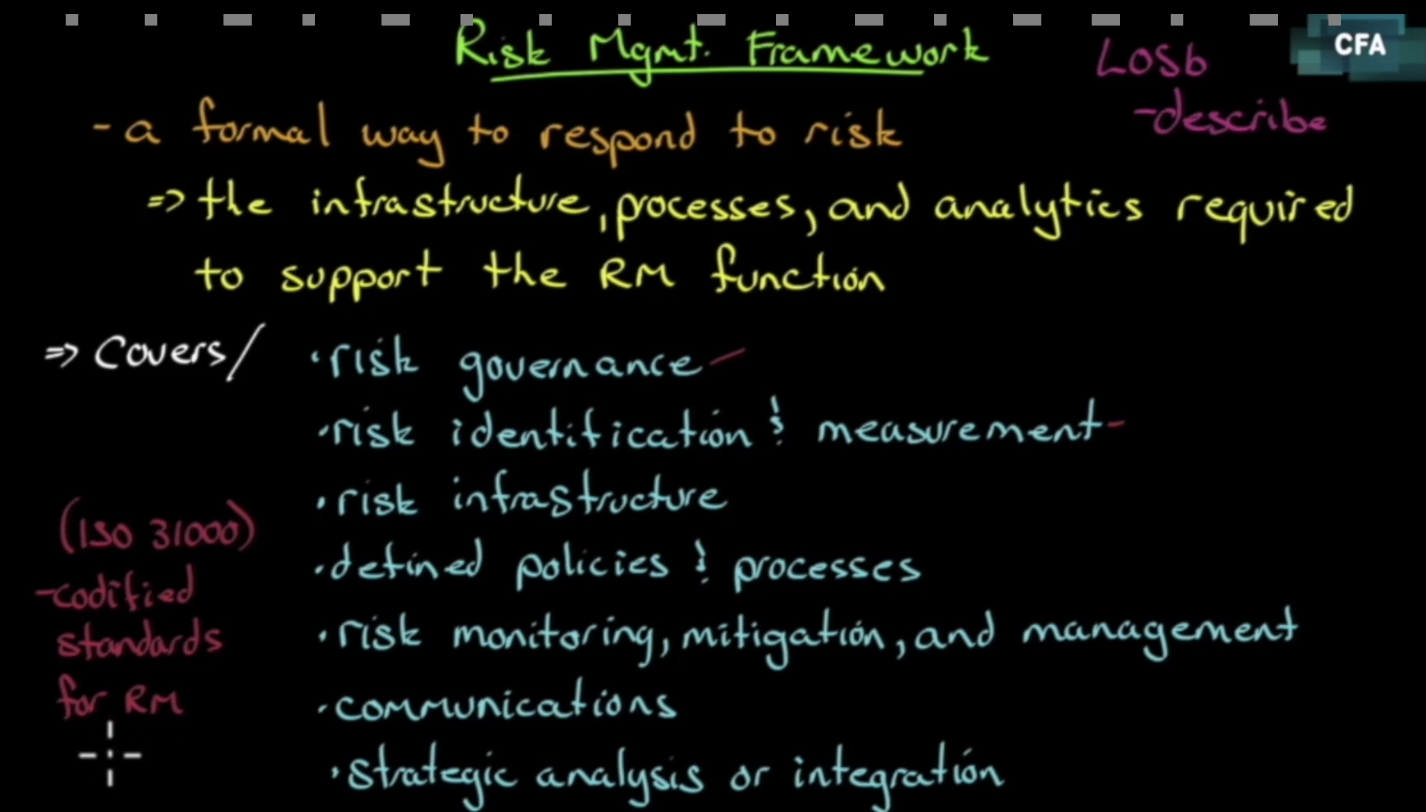 Risk Mgmt. Framework
LOSb
-describe
CFA
- a formal way to respond to risk
=> the infrastructure, processes, and analytics required
to support the RM function
=> Covers/
· risk governance -
· risk identification & measurement -
· risk infrastructure
· defined policies & processes
· risk monitoring, mitigation, and management
· communications
· strategic analysis or integration
(ISO 31000)
-codified
standards
for RM